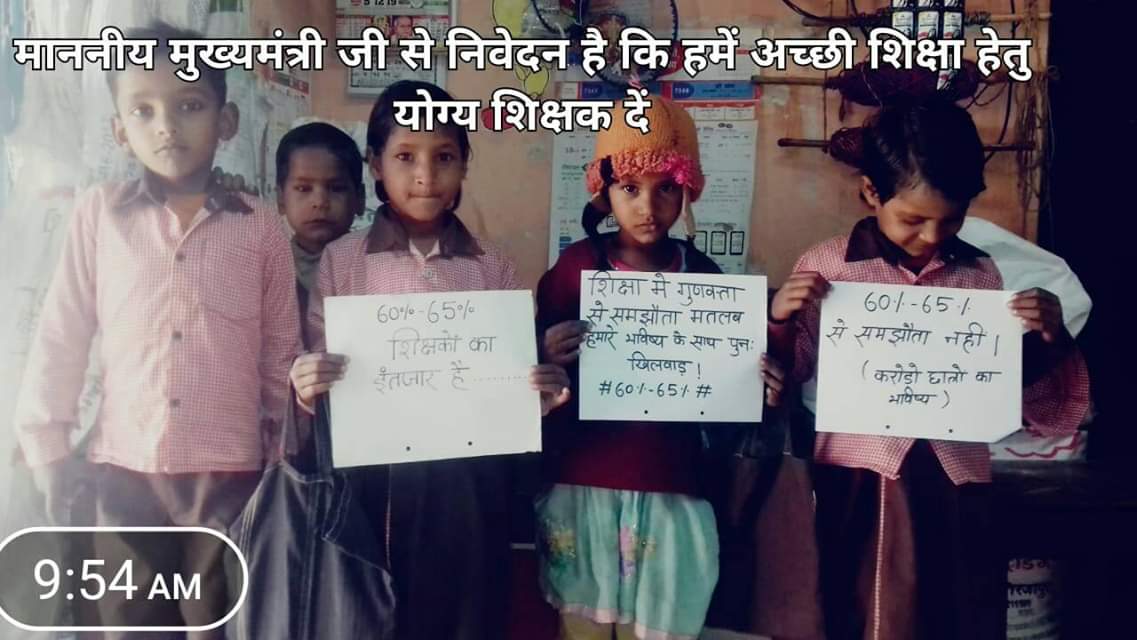 माननीय मुख्यमंत्री जी से निवेदन है कि हमें अच्छी शिक्षा हेतु
योग्य शिक्षक दें
60%-65%
शिक्षकों का
इंतजार है..........
शिक्षा मे गुणवत्ता
से समझौता मतलब
हमारे भविष्य के साथ पुनः
खिलवाड़!
#60%-65% #
60%-65%
से समझौता नही।
(करोडो छात्रो का
भविष्य)
9:54 AM